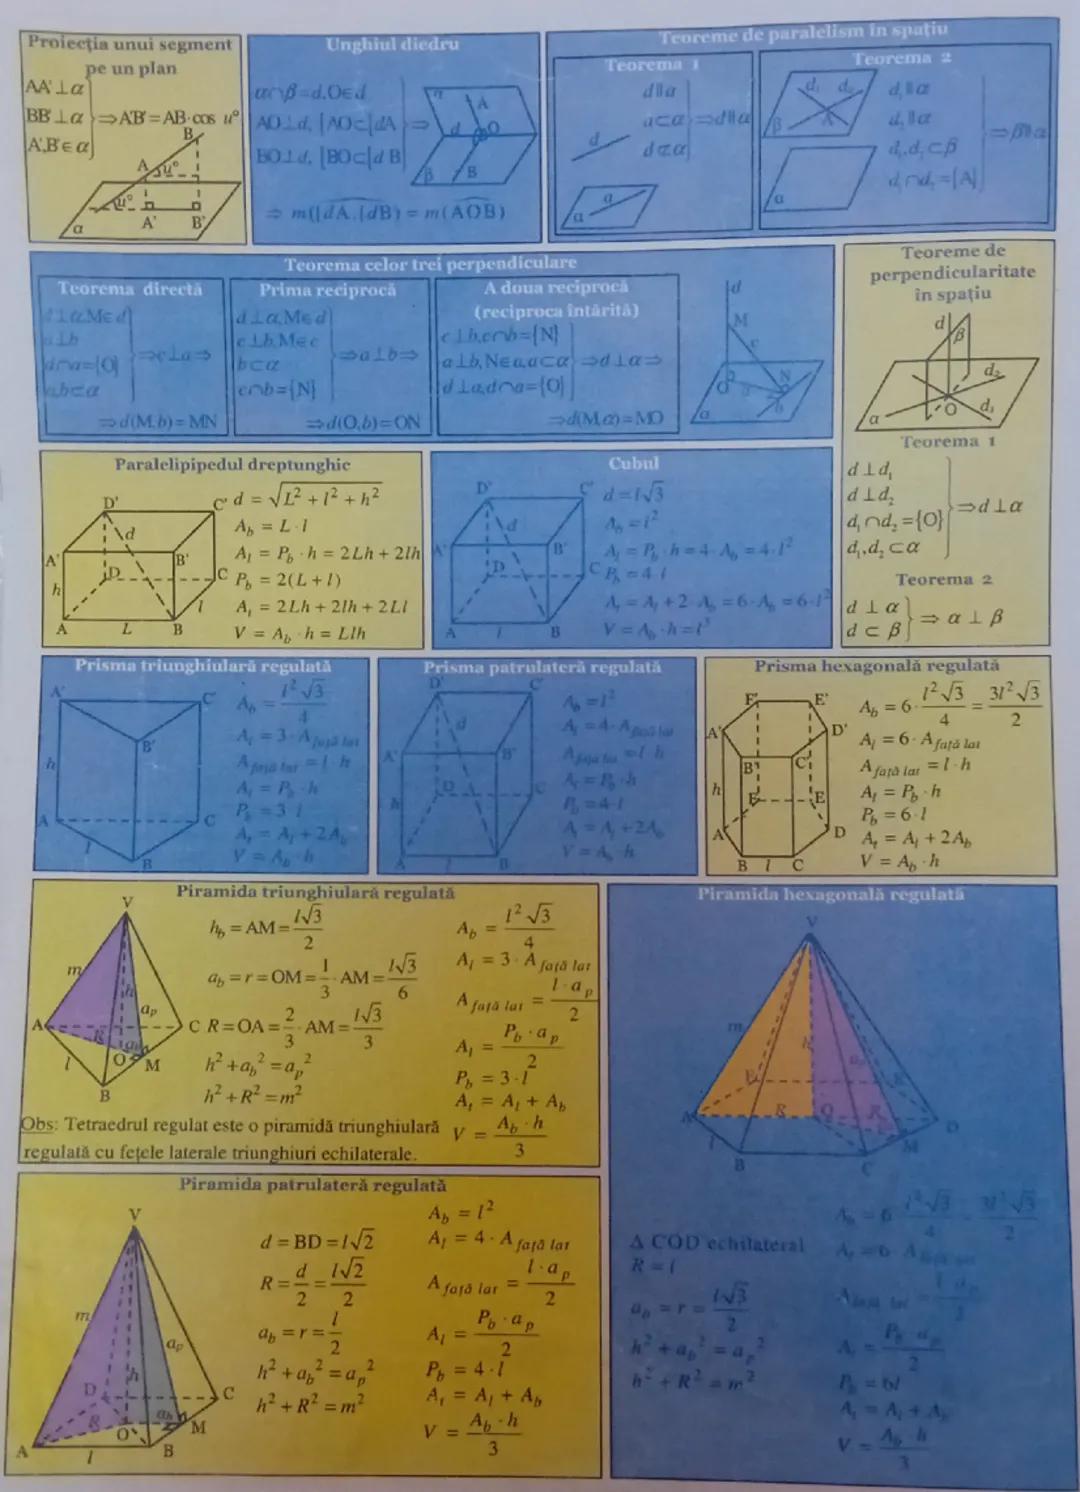 Proiecția unui segment
pe un plan
AA'⊥α
BB'⊥α ⇒A'B'=AB·cos u°
A',B'∈α
B
A u°
u°
A' B'
α
Unghiul diedru
α∩β=d,O∈d
AO⊥d, [AO⊂[dA ⇒
BO⊥d, [BO⊂[dB
⇒ m([dA,[dB) = m(AOB)
A
d O
β B
Teoreme de paralelism în spațiu
Teorema 1
d∥a
a⊂α ⇒d∥α
d⊄α
d
a
α
Teorema 2
d₁∥α
d₂∥α
d₁,d₂⊂β ⇒β∥α
d₁∩d₂={A}
d₁ d₂
β A
α
Teorema celor trei perpendiculare
Teorema directă
d⊥α,M∈d
a⊥b
d∩a={O} ⇒c⊥a⇒
a,b⊂α
⇒d(M,b)=MN
Prima reciprocă
d⊥α,M∈d
c⊥b,M∈c
b⊂α ⇒a⊥b⇒
c∩b={N}
⇒d(O,b)=ON
A doua reciprocă
(reciproca întărită)
c⊥b,c∩b={N}
a⊥b,N∈a,a⊂α ⇒d⊥α⇒
d⊥a,d∩a={O}
⇒d(M,α)=MO
d
M
c
O a N
α b
Teoreme de
perpendicularitate
în spațiu
d β
d₂
α O d₁
Teorema 1
d⊥d₁
d⊥d₂
d₁∩d₂={O} ⇒d⊥α
d₁,d₂⊂α
Teorema 2
d ⊥ α
d ⊂ β ⇒ α ⊥ β
Paralelipipedul dreptunghic
d = √L² + l² + h²
A_b = L·l
A_l = P_b · h = 2Lh + 2lh
P_b = 2(L + l)
A_t = 2Lh + 2lh + 2Ll
V = A_b · h = Llh
D' C'
d
A' B'
h D C
l
A L B
Cubul
d = l√3
A_b = l²
A_l = P_b · h = 4 · A_b = 4·l²
P_b = 4·l
A_t = A_l + 2·A_b = 6·A_b = 6·l²
V = A_b · h = l³
D' C'
d
A' B'
D C
A l B
Prisma triunghiulară regulată
A_b = l²√3/4
A_l = 3 · A_față lat
A_față lat = l·h
A_l = P_b · h
P_b = 3·l
A_t = A_l + 2A_b
V = A_b · h
A' C'
B'
h
A C
l
B
Prisma patrulateră regulată
A_b = l²
A_l = 4 · A_față lat
A_față lat = l·h
A_l = P_b · h
P_b = 4·l
A_t = A_l + 2A_b
V = A_b · h
D' C'
d
A' B'
h D C
A l B
Prisma hexagonală regulată
A_b = 6 · l²√3/4 = 3l²√3/2
A_l = 6 · A_față lat
A_față lat = l·h
A_l = P_b · h
P_b = 6·l
A_t = A_l + 2A_b
V = A_b · h
F' E'
A' D'
B' C'
h F E
A D
B l C
Piramida triunghiulară regulată
h_b = AM = l√3/2
a_b = r = OM = 1/3 · AM = l√3/6
R = OA = 2/3 · AM = l√3/3
h² + a_b² = a_p²
h² + R² = m²
A_b = l²√3/4
A_l = 3 · A_față lat
A_față lat = l·a_p/2
A_l = P_b · a_p/2
P_b = 3·l
A_t = A_l + A_b
V = A_b · h/3
V
m
h a_p
A R a_b C
l O M
B
Obs: Tetraedrul regulat este o piramidă triunghiulară
regulată cu fețele laterale triunghiuri echilaterale.
Piramida patrulateră regulată
d = BD = l√2
R = d/2 = l√2/2
a_b = r = l/2
h² + a_b² = a_p²
h² + R² = m²
A_b = l²
A_l = 4 · A_față lat
A_față lat = l·a_p/2
A_l = P_b · a_p/2
P_b = 4·l
A_t = A_l + A_b
V = A_b · h/3
V
m
a_p
h
D C
R a_b M
O
A l B
Piramida hexagonală regulată
V
m
h a_p
A R O R D
l M
B C
Δ COD echilateral
R = l
a_b = r = l√3/2
h² + a_b² = a_p²
h² + R² = m²
A_b = 6 · l²√3/4 = 3l²√3/2
A_l = 6 · A_față lat
A_față lat = l·a_p/2
A_l = P_b · a_p/2
P_b = 6l
A_t = A_l + A_b
V = A_b · h/3